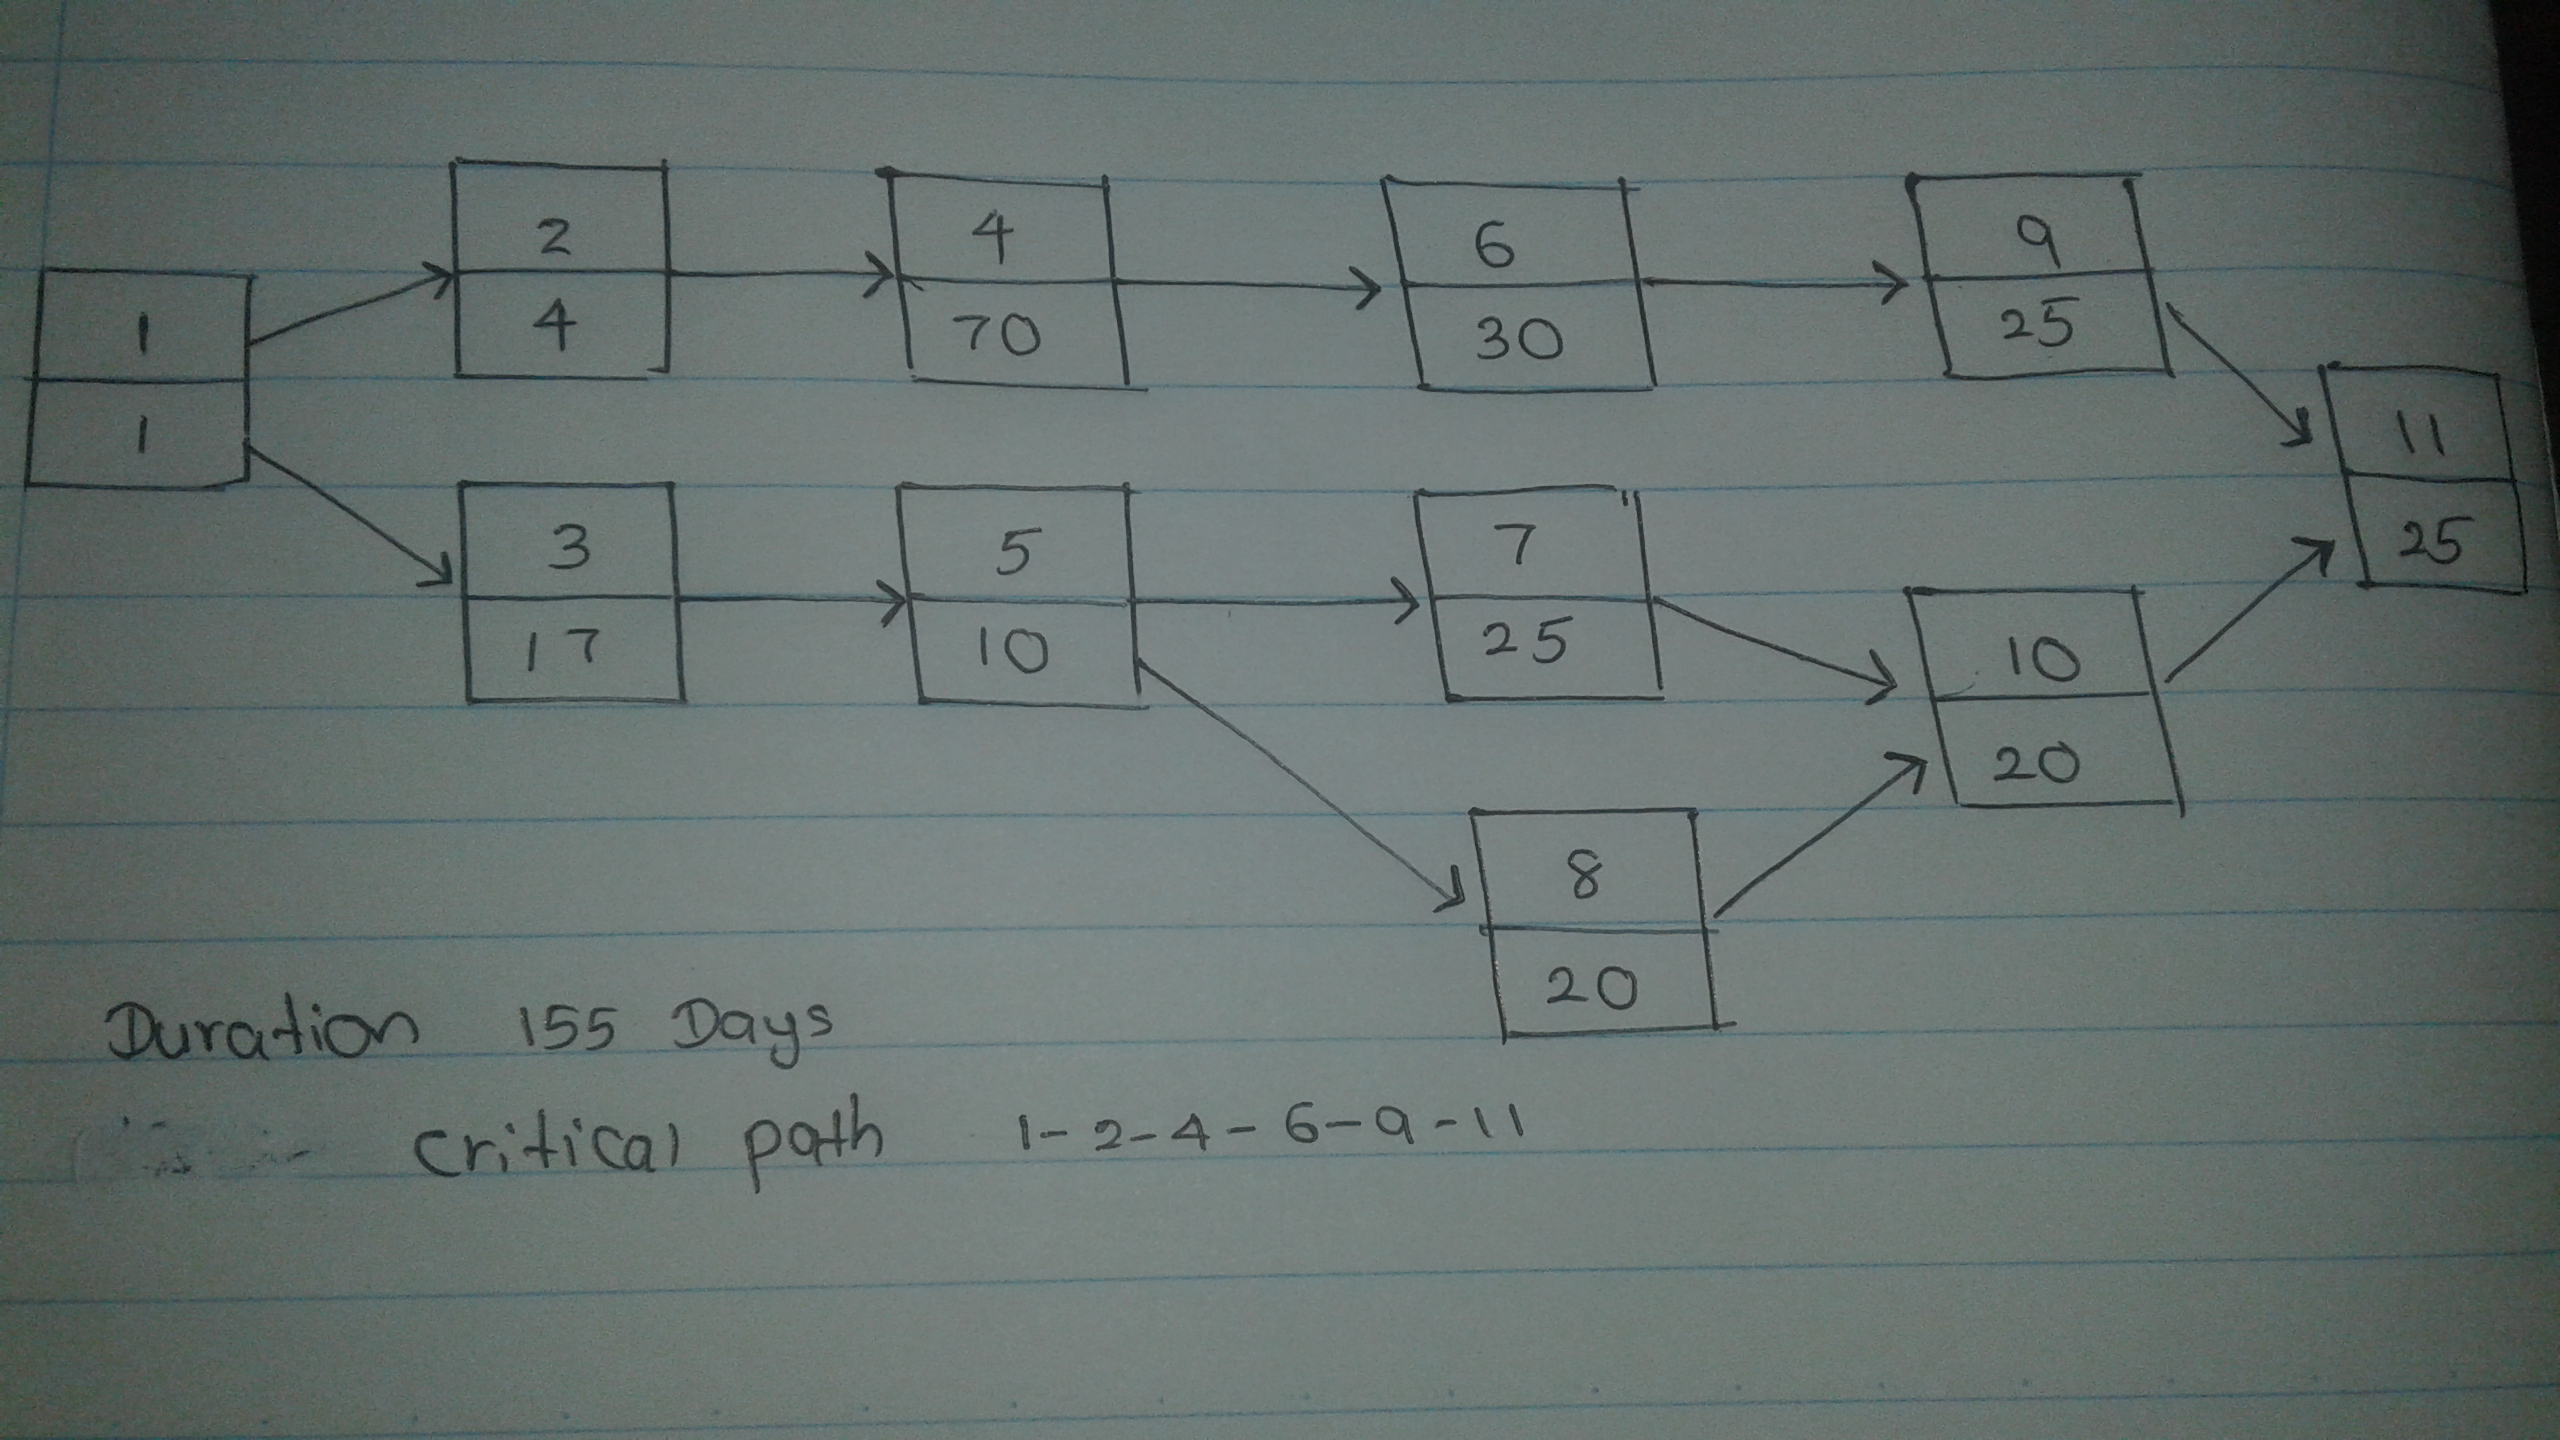 1
1
2
4
4
70
6
30
9
25
11
25
3
17
5
10
7
25
10
20
8
20
Duration 155 Days
critical path 1-2-4-6-9-11